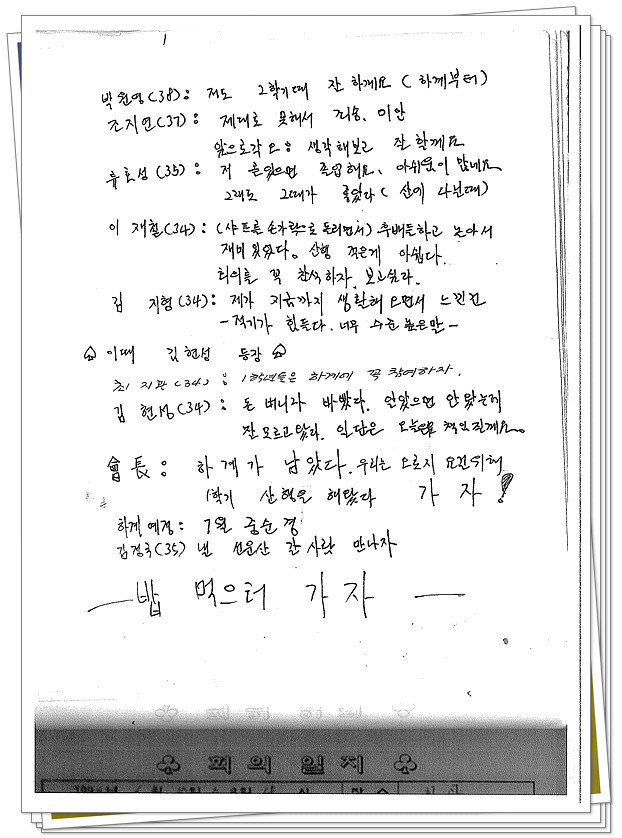 박원영(38): 저도 2학기때 잘 하게요 (하계부터)
조지연(37): 제대로 못해서 죄송. 미안
앞으로각오: 생각해보고 잘 할께요
류호성(35): 저 혼있으면 졸립해요. 아쉬움이 많네요
그래도 그때가 좋았다 (산에 다닌때)
이 재철(34): (샤프를 손가락으로 돌리면서) 후배들하고 놀아서
재미있었다. 산행 적은게 아쉽다.
회의를 꼭 참석하자. 보고싶다.
김 지형(34): 제가 지금까지 생활해오면서 느낀건
- 적기가 힘든다. 너무 수준 높은말 -
♤ 이때 김현섭 등장 ♤
최지관(34): 1학년들은 하계에 꼭 참여하자.
김 현섭(34): 돈 버니라 바빴다. 일있으면 안 맞는게
잘모르고 왔다. 일단은 오늘은 책임질께요.
會長: 하계가 남았다. 우리는 오로지 요건위해
1학기 산행을 해왔다 가 자!
하계예정: 7월 중순경
김경국(35) 낼 선운산 갈사람 만나자
— 밥 먹으러 가 자 —
♧ 회 의 일 지 ♧